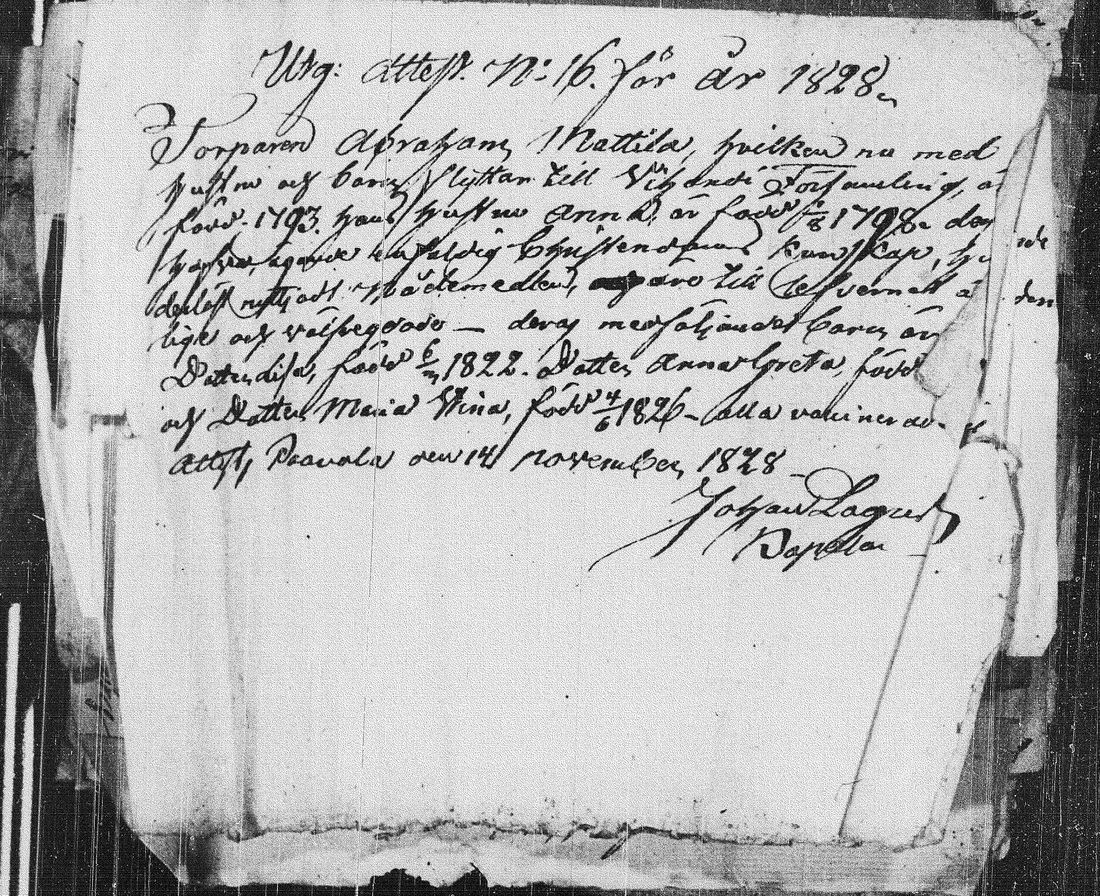 Utg: attest. N: 16. för år 1828.
Torparen Abraham Mattila, hvilken nu med
hustru och barn flyttar till Vihandi Församling, ä
född 1793. hans hustru Anna är född 1798.
hafva, egande enfaldig Christendoms kunskap,
derföre nyttjadt nådemedlen, äro till lefvernet ä
lige och välfregdade — deras medföljande barn äro
Dottren Lisa, född 1822. Dottren Anna Greta, född
och Dottren Maria Stina, född 4/6 1826 - alla vaccinerade.
attest, Paavola den 14 november 1828
Johan Lagus